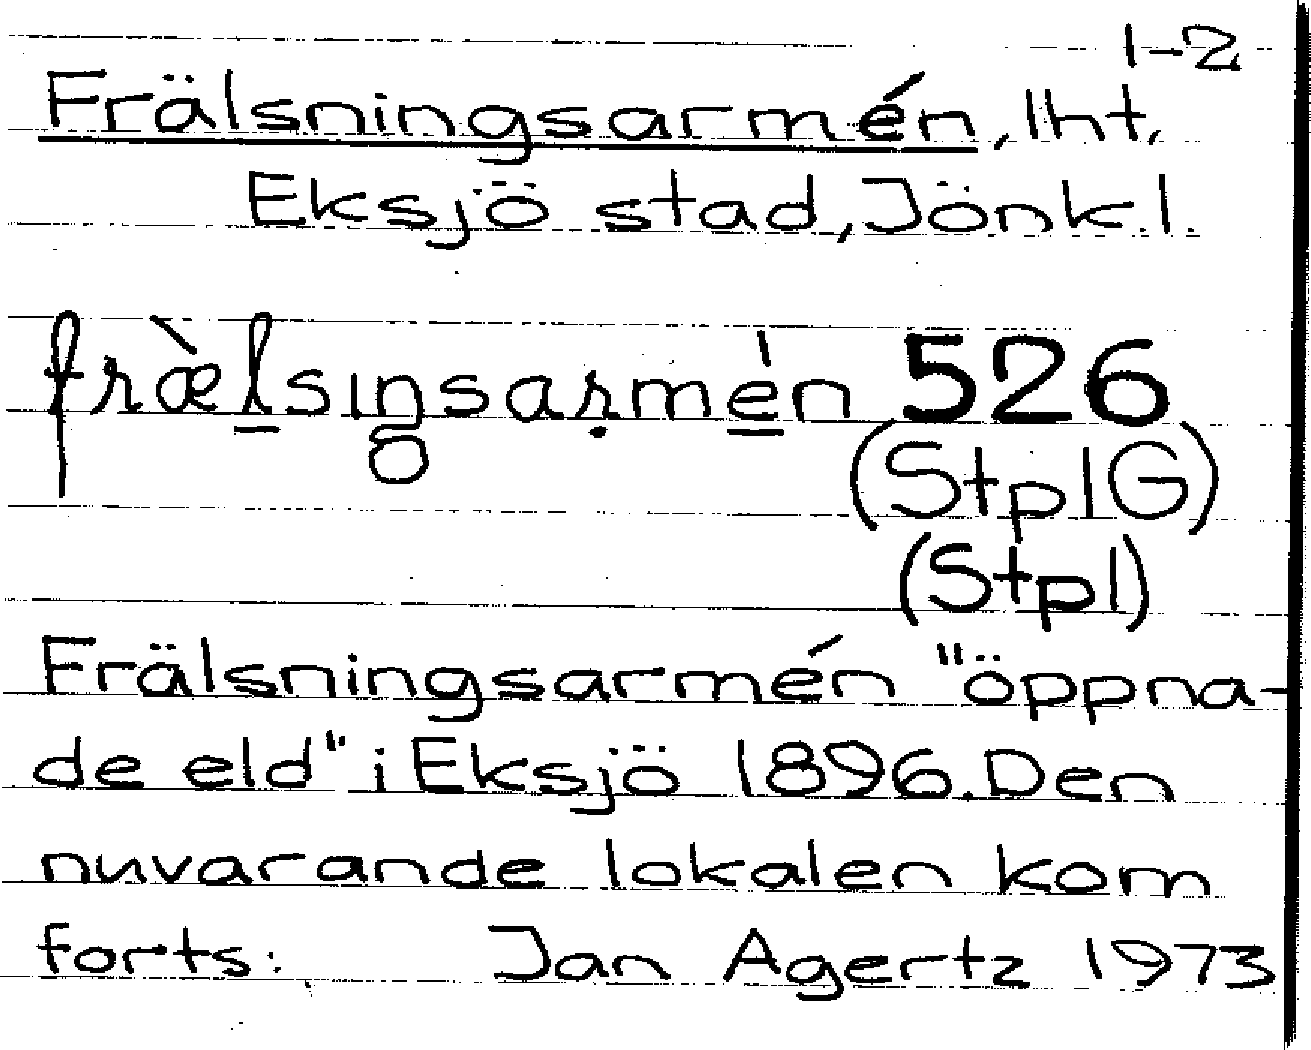 1-2
Frälsningsarmén, lht,
Eksjö stad, Jönk.l.
fræ̀lsiŋsaṛmén 526
(StplG)
(Stpl)
Frälsningsarmén "öppna-
de eld" i Eksjö 1896. Den
nuvarande lokalen kom
forts: Jan Agertz 1973